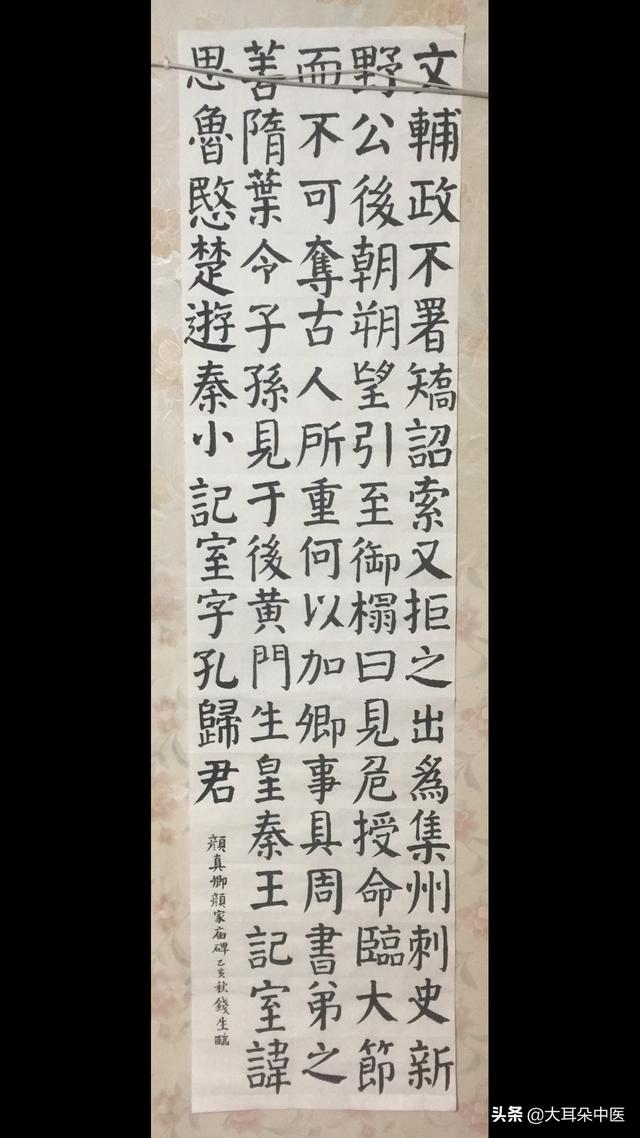 文輔政不署矯詔索又拒之出為集州刺史新
野公後朝朔望引至御榻曰見危授命臨大節
而不可奪古人所重何以加卿事具周書弟之
善隋葉令子孫見于後黄門生皇秦王記室諱
思魯愍楚遊秦小記室字孔歸君
顔真卿顔家庙碑己亥秋錢生臨
头条 @大耳朵中医